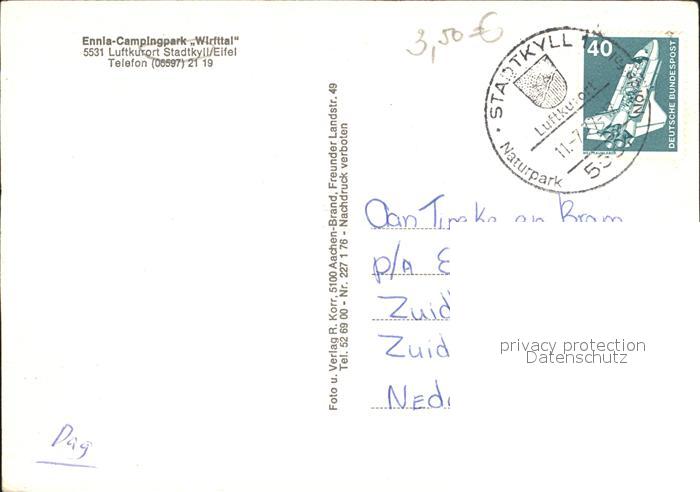 Ennia-Campingpark „Wirfttal"
5531 Luftkurort Stadtkyll/Eifel
Telefon (06597) 21 19
3,50 €
STADTKYLL 1
Luftkurort
11.-7.
Naturpark
40
DEUTSCHE BUNDESPOST
Foto u. Verlag R. Korr, 5100 Aachen-Brand, Freunder Landstr. 49
Tel. 52 69 00 - Nr. 227 1 76 - Nachdruck verboten
Aan Tineke en Bram
p/A E
Zuid
Zuid
Ned
privacy protection
Datenschutz
Dag